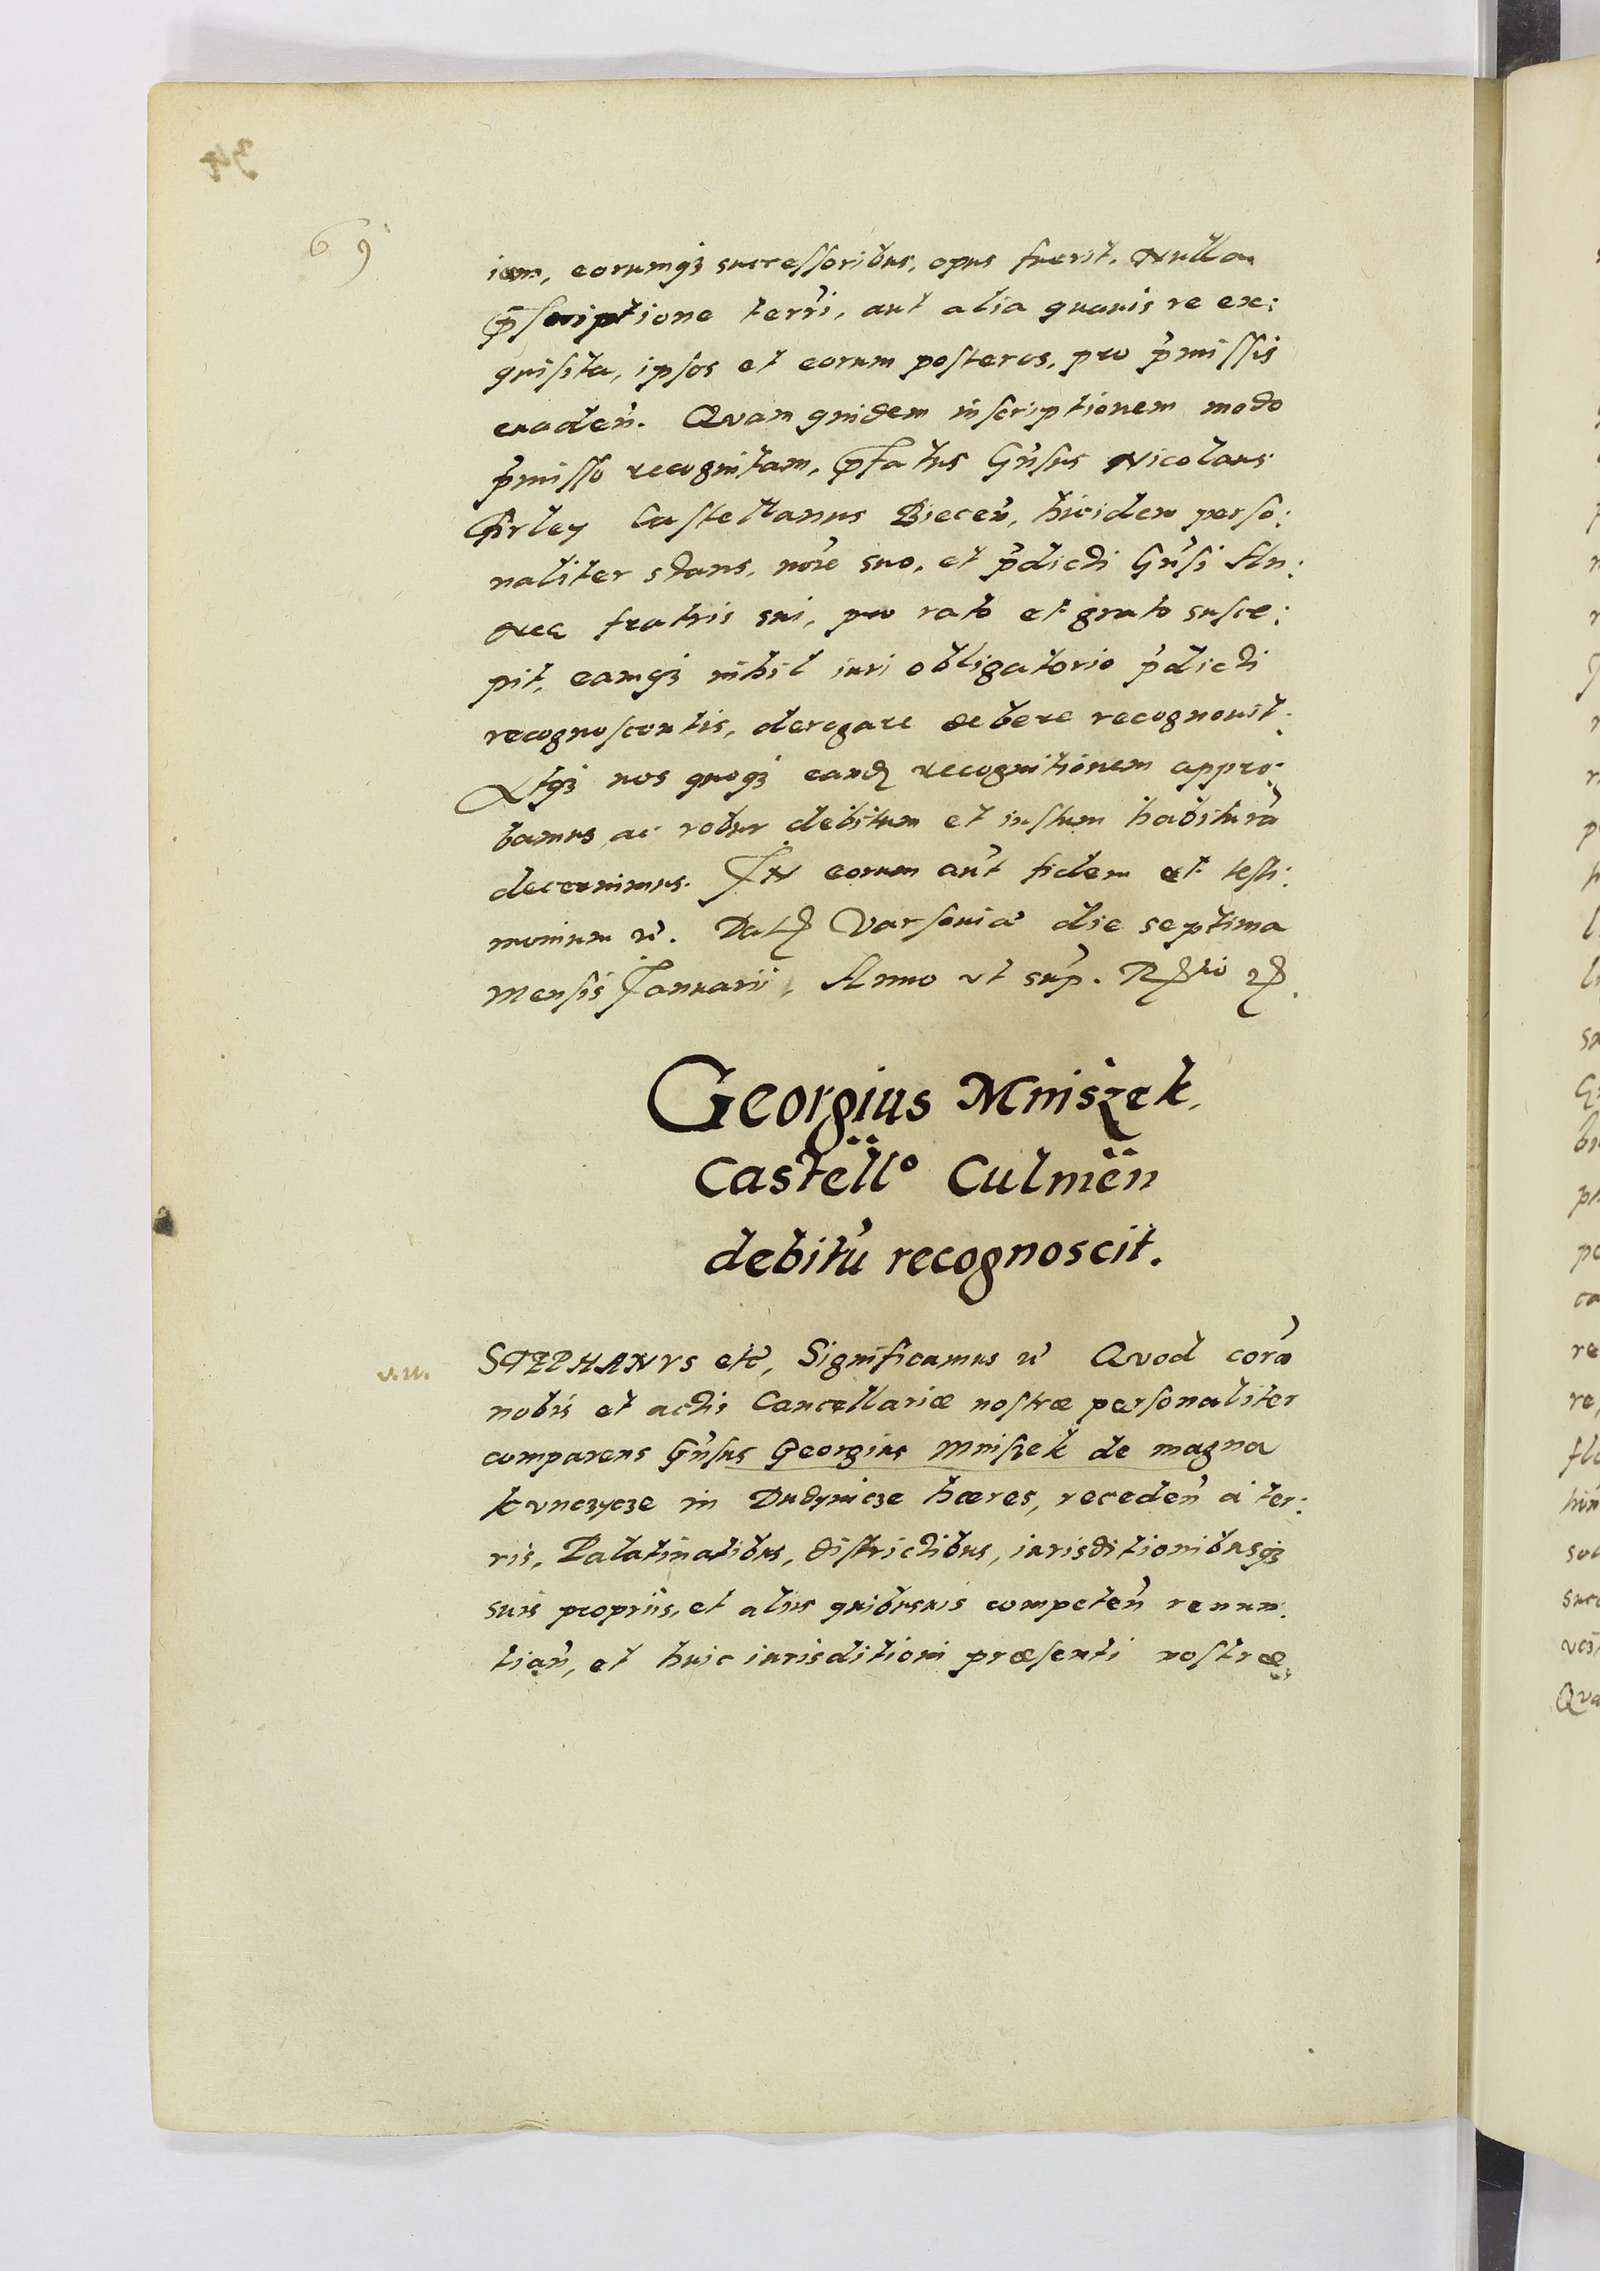 69
iom, eorumq3 successoribus, opus fuerit. Nulla
p̄scriptione terri, aut alia quauis re ex:
quisita, ipsos et eorum posteros, pro p̓missis
euadeñ. Quam quidem inscriptionem modo
p̓misso recognitam, p̄fatus Gn̓sus Nicolaus
Firley Castellanus Biecen̓, hicidem perso:
naliter stans, no͠ie suo, et p̓dicti Gn̓si An:
dreę fratris sui, pro rato et grato susce:
pit, eamq3 nihil iuri obligatorio p̓dicti
recognoscentis, derogare debere recognouit.
Atq3 nos quoq3 eanđ recognitionem appro:
bamus, ac robur debitum et iustum habiturā
decernimus. In eorum aut̓ fidem et testi:
monium &c. Datꝭ Varsouiæ die septima
mensis Januarii, Anno vt sup̓. Rꝭtio &ꝭ.
Georgius Mniszek
Castell̈o Culmën
debitū recognoscit.
v.m.
STEPHANVS etc̓, Significamus &c̓ Quod corā
nobis et actis Cancellariæ nostræ personaliter
comparens Gn̓sus Georgius Mniszek de magna
kunczycze in Dudynicze hæres, receden̓ a ter:
ris, Palatinatibus, districtibus, iurisditionibusq3
suis propriis, et aliis quibusuis competen̓ renun:
tian̓, et huic iurisditioni præsenti nostræ,